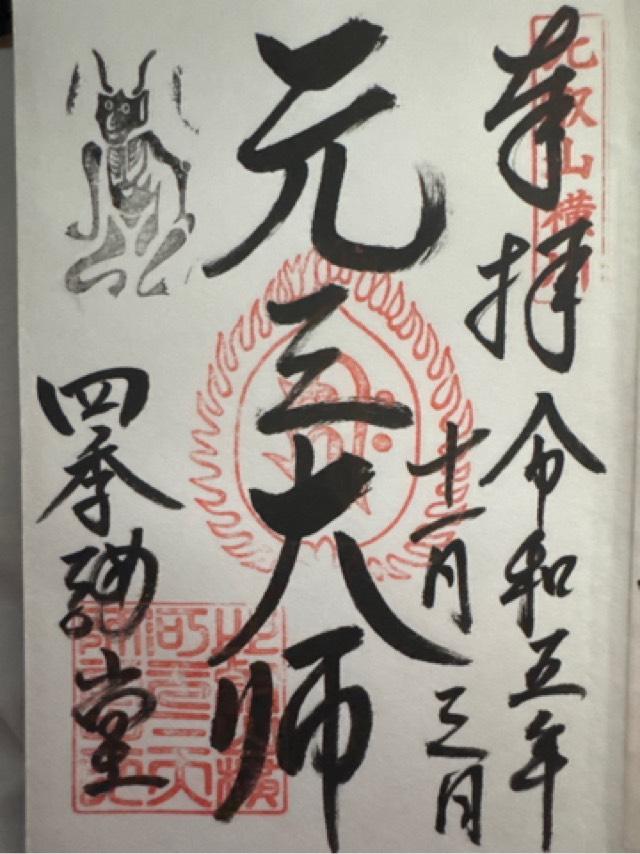 比叡山横川
奉拝 令和五年
十一月三日
元三大師
四季講堂